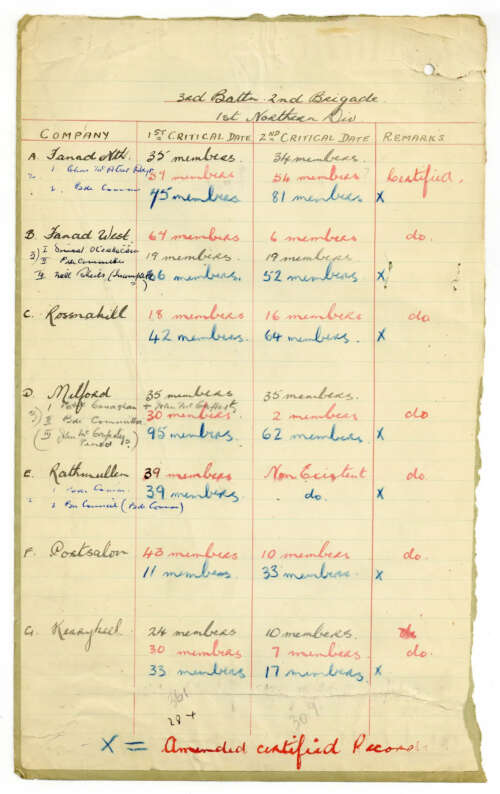 3rd Battn. 2nd Brigade
1st Northern Div
COMPANY 1ST CRITICAL DATE 2ND CRITICAL DATE REMARKS
A. Fanad Nth. 35 members. 34 members.
1 57 members 54 members Certified.
2 Bde Comm 75 members 81 members X
B. Fanad West 64 members 6 members do.
3) I 19 members 19 members
II Bde Committee
IV 66 members. 52 members X
C. Rosnakill 18 members 16 members do
42 members. 64 members. X
D. Milford 35 members 35 members.
I
3) II Bde Committee 30 members. 2 members do
(III John Mc 95 members. 62 members. X
E. Rathmullen 39 members Non Existent do.
1 Bde Comm. 39 members. do. X
2 Bn Council (Bde Comm)
F. Portsalon 43 members 10 members do.
11 members. 33 members. X
G. Kerrykeel 24 members 10 members.
30 members 7 members do.
33 members 17 members. X
361
28 + 309
X = Amended certified Records